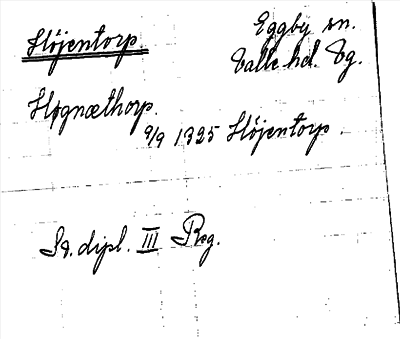 Höjentorp. Eggby sn.
Valle hd. Vg.
Høgnæthorp.
9/9 1325 Höjentorp.
Sv. dipl. III Reg.